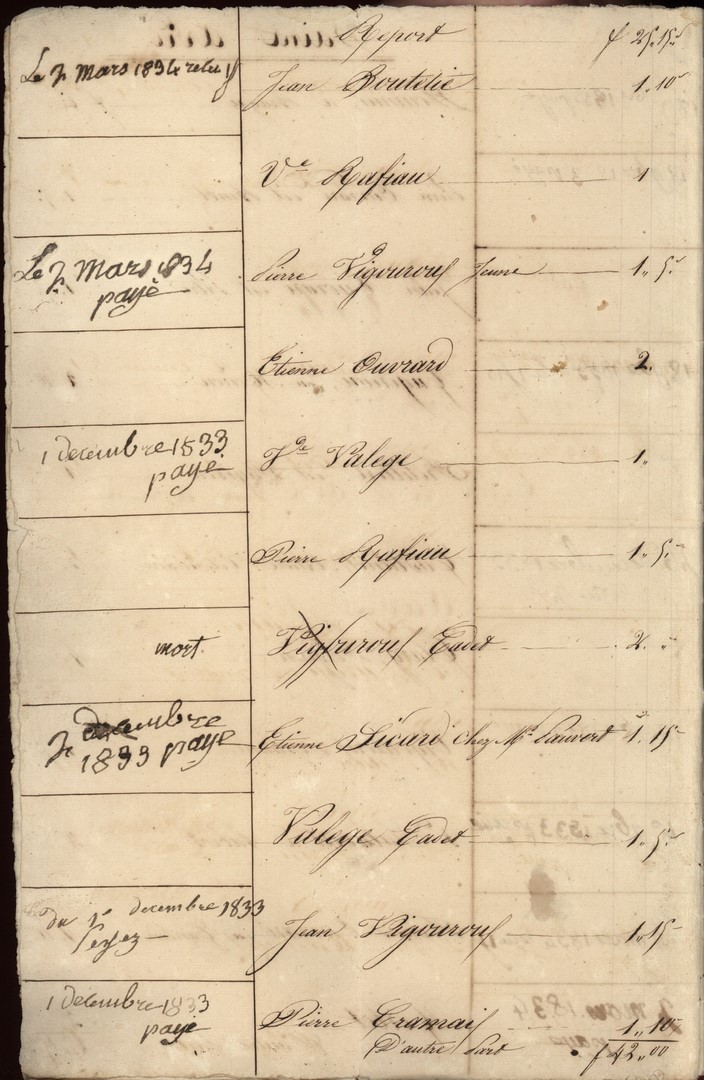 Report f 25.15.s
Le 2 mars 1834
Jean Boutelié 1.10s
Ve Rafiau 1
Le 2 mars 1834
payé
Pierre Vigouroux Jeune 1.. 5.s
Etienne Ouvrard 2.
1 decembre 1833
payé
Ve Valege 1..
Pierre Rafiau 1.. 5.s
mort
Vigouroux Cadet 2. ..
decembre
1833 payé
Etienne Sicard chez Mr Sauvert 1. 15
Valege Cadet 1. 5.s
du 1r decembre 1833
Jean Vigouroux 1.. 15
1 decembre 1833
payé
Pierre Cramaix 1.. 10s
D'autre Part f 42.00